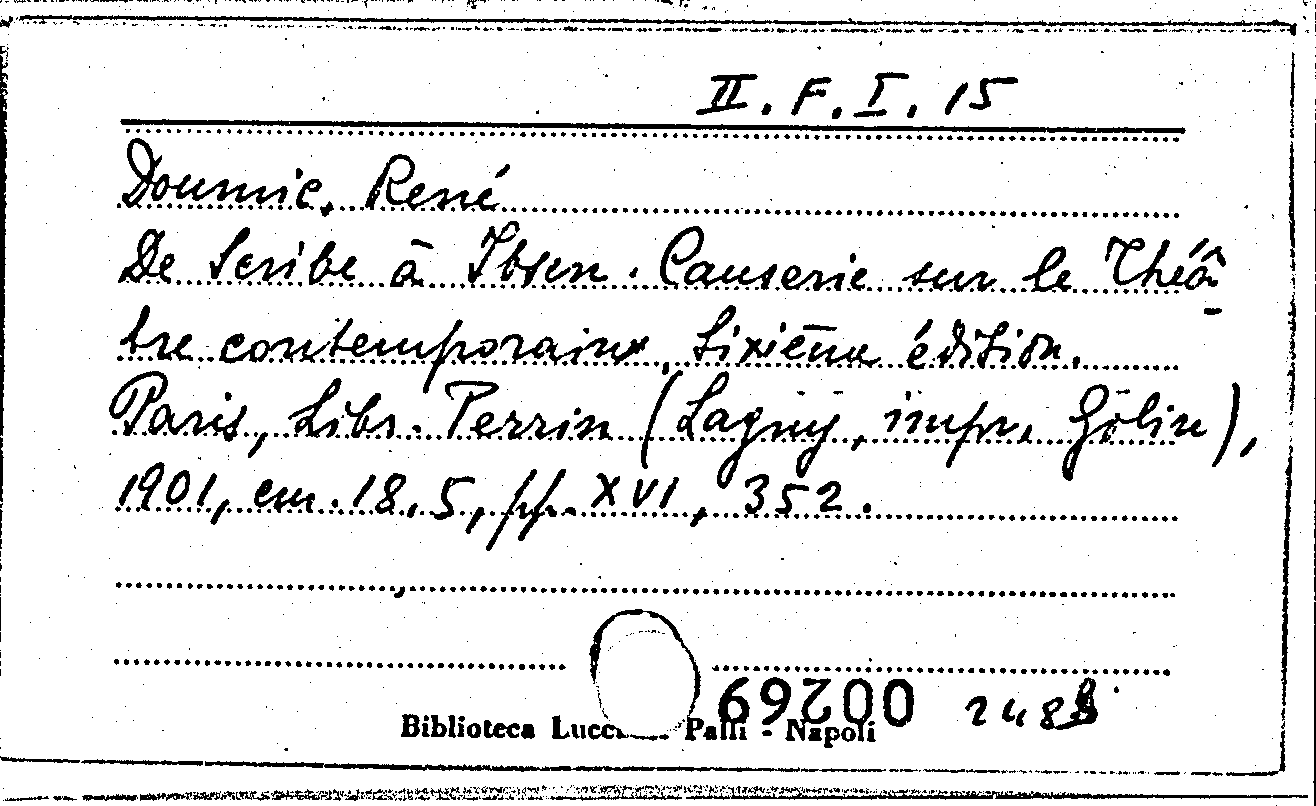 II. F. I. 15
Doumic, René
De Scribe à Ibsen. Causerie sur le Théâ-
tre contemporain, Sixième édition.
Paris, Libr. Perrin (Lagny, impr. Colin),
1901, cm. 18,5, pp. XVI, 352.
00269
Biblioteca Palli - Napoli